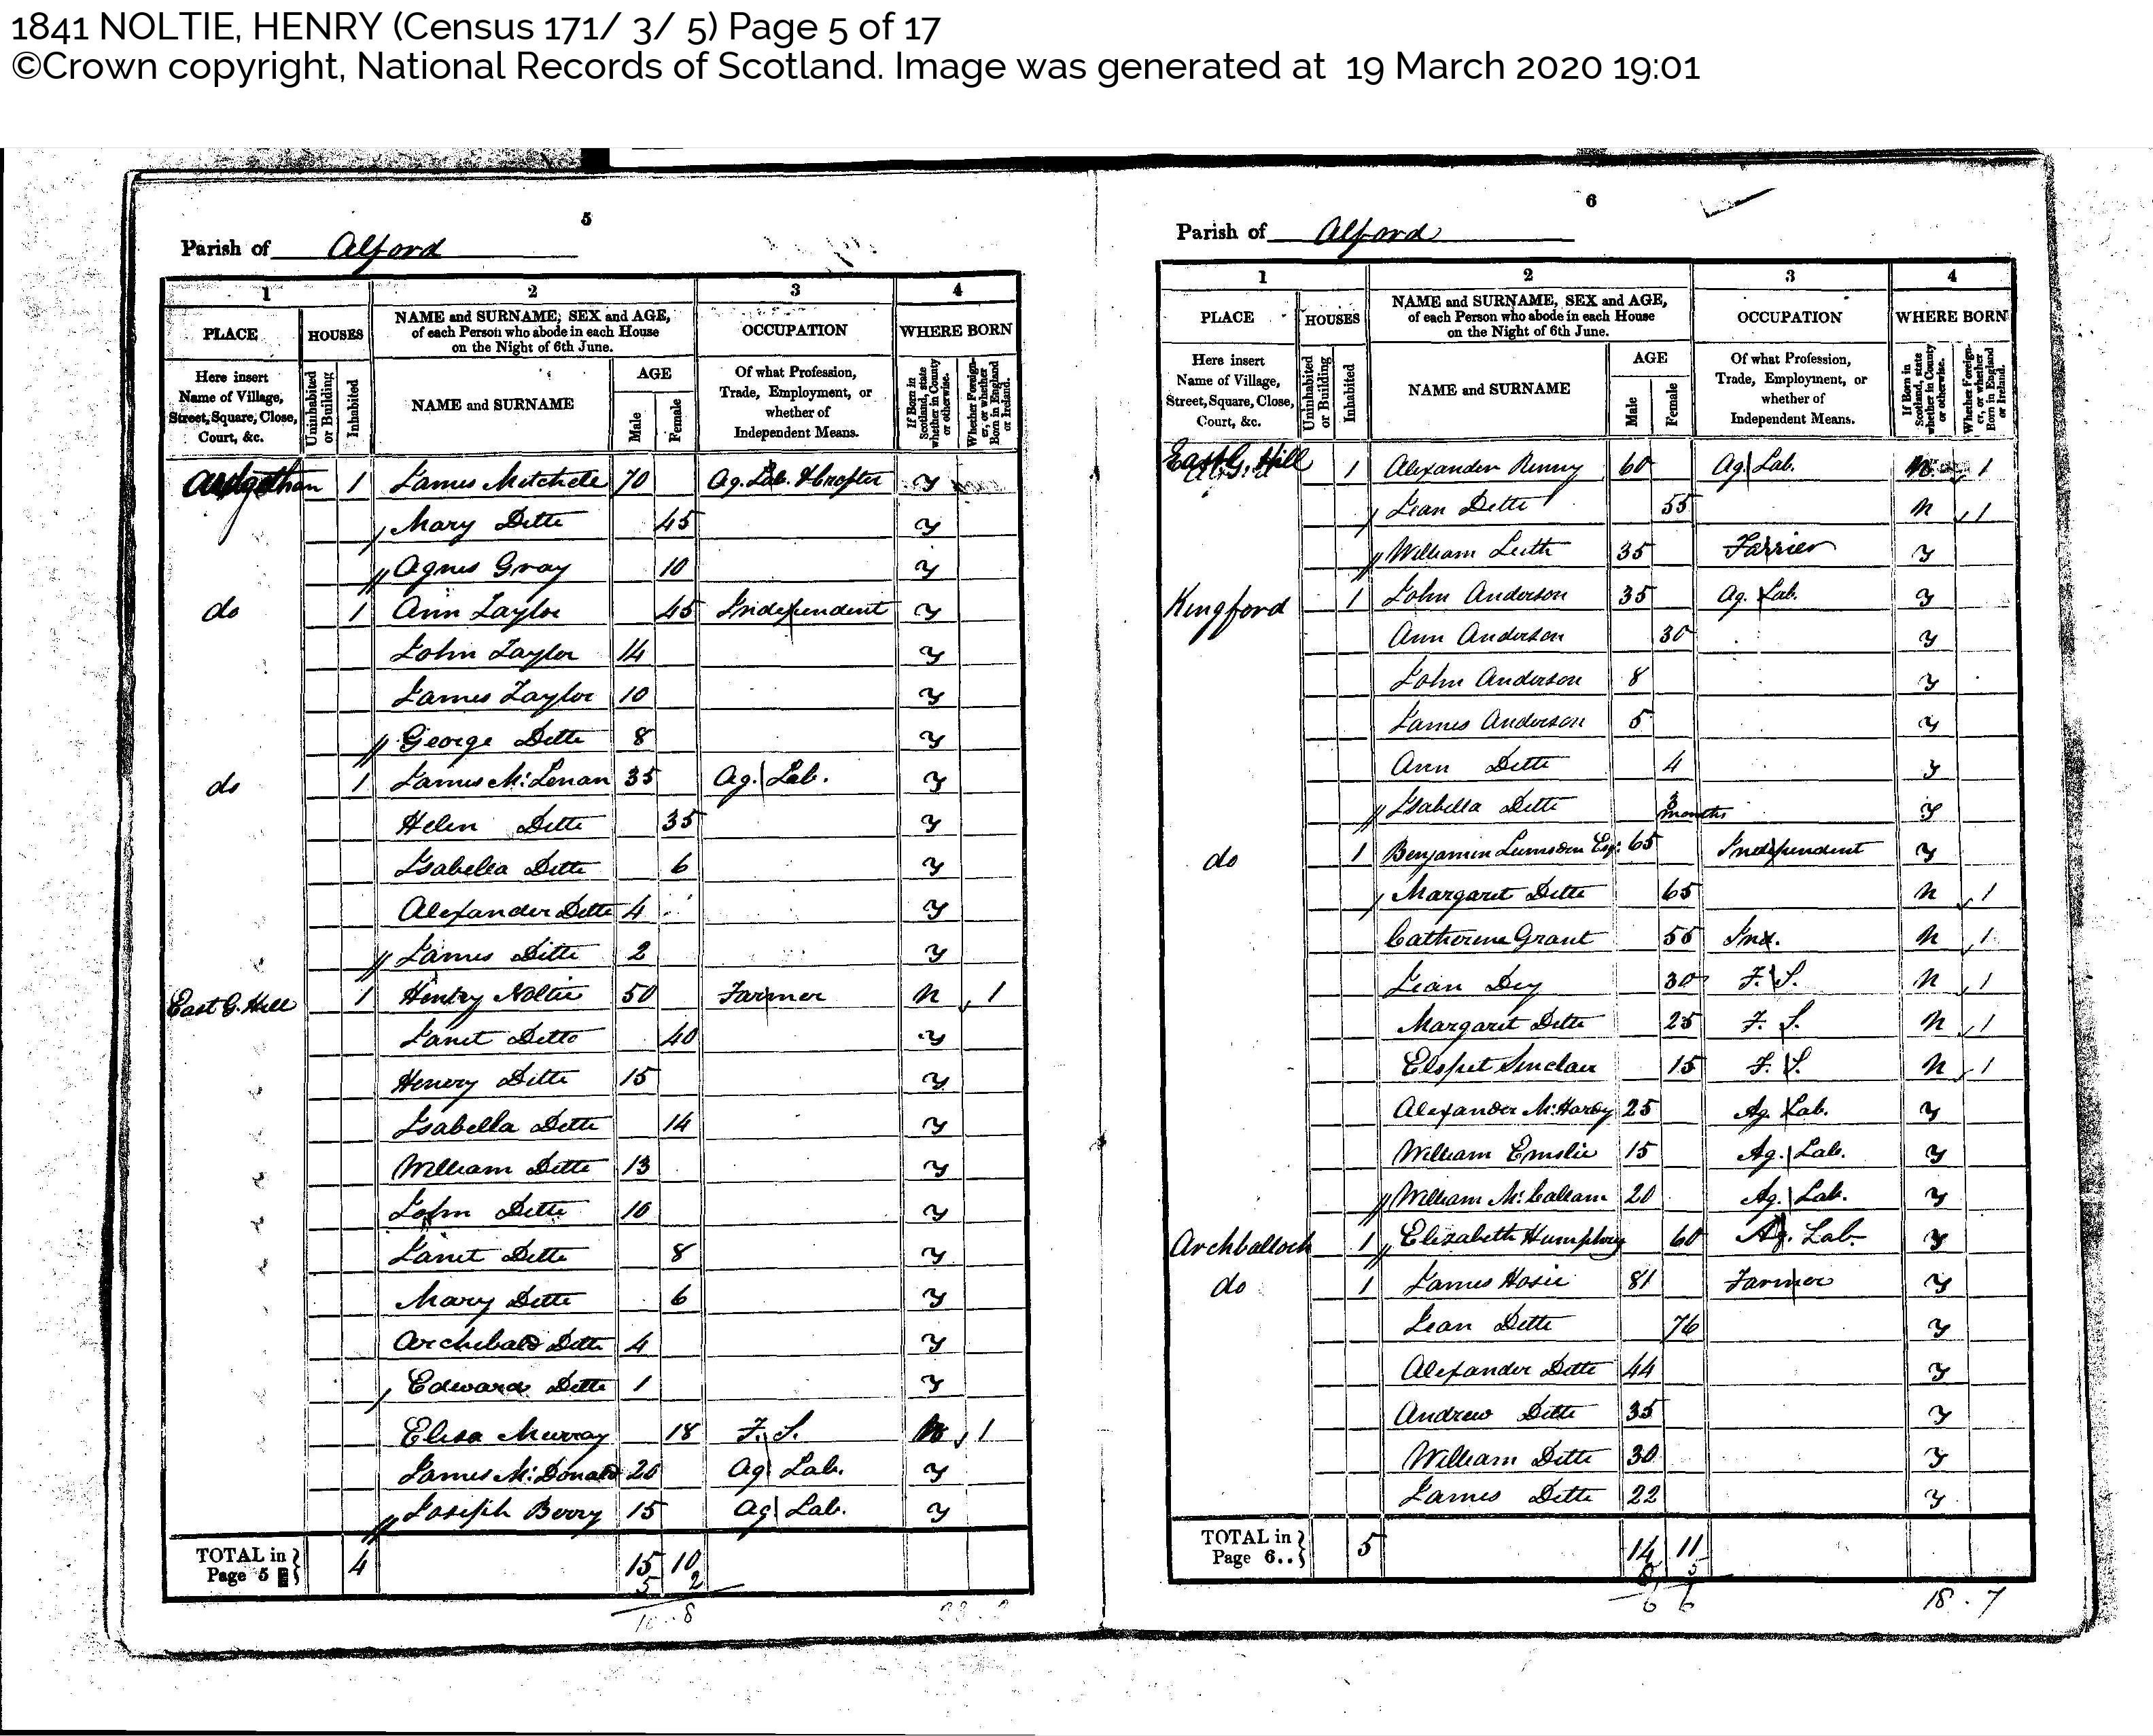 1841 NOLTIE, HENRY (Census 171/ 3/ 5) Page 5 of 17
©Crown copyright, National Records of Scotland. Image was generated at 19 March 2020 19:01
5
Parish of Alford
1 2 3 4
PLACE HOUSES NAME and SURNAME, SEX and AGE, of each Person who abode in each House on the Night of 6th June. OCCUPATION WHERE BORN
Here insert Name of Village, Street, Square, Close, Court, &c. Uninhabited or Building Inhabited NAME and SURNAME AGE Male Female Of what Profession, Trade, Employment, or whether of Independent Means. If Born in Scotland, state whether in County or otherwise. Whether Foreigner, or whether Born in England or Ireland.
1 James Mitchele 70 Ag. Lab. & Crofter y
Mary Ditto 45 y
Agnes Gray 10 y
do 1 Ann Taylor 45 Independent y
John Taylor 14 y
James Taylor 10 y
George Ditto 8 y
do 1 James McLenan 35 Ag. Lab. y
Helen Ditto 35 y
Isabella Ditto 6 y
Alexander Ditto 4 y
James Ditto 2 y
East G. Hill 1 Henry Noltie 50 Farmer n 1
Janet Ditto 40 y
Henery Ditto 15 y
Isabella Ditto 14 y
William Ditto 13 y
John Ditto 10 y
Janet Ditto 8 y
Mary Ditto 6 y
Archibald Ditto 4 y
Edward Ditto 1 y
Elisa Murray 18 F. S. n 1
James McDonald 20 Ag Lab. y
Joseph Berry 15 Ag Lab. y
TOTAL in Page 5 4 15 10
5 2
10 8
6
Parish of Alford
1 2 3 4
PLACE HOUSES NAME and SURNAME, SEX and AGE, of each Person who abode in each House on the Night of 6th June. OCCUPATION WHERE BORN
Here insert Name of Village, Street, Square, Close, Court, &c. Uninhabited or Building Inhabited NAME and SURNAME AGE Male Female Of what Profession, Trade, Employment, or whether of Independent Means. If Born in Scotland, state whether in County or otherwise. Whether Foreigner, or whether Born in England or Ireland.
East G. Hill 1 Alexander Renny 60 Ag Lab. n 1
Jean Ditto 55 n 1
William Leith 35 Farrier y
Kingford 1 John Anderson 35 Ag. Lab. y
Ann Anderson 30 y
John Anderson 8 y
James Anderson 5 y
Ann Ditto 4 y
Isabella Ditto 3 months y
do 1 Benjamin Lumsden Esq: 65 Independent y
Margaret Ditto 65 n 1
Catherine Grant 55 Ind. n 1
Jean Dey 30 F. S. n 1
Margaret Ditto 25 F. S. n 1
Elspet Sinclair 15 F. S. n 1
Alexander McHardy 25 Ag. Lab. y
William Emslie 15 Ag. Lab. y
William McCallam 20 Ag. Lab. y
Archballoch 1 Elizabeth Humphrey 60 Ag. Lab. y
do 1 James Hosie 81 Farmer y
Jean Ditto 76 y
Alexander Ditto 44 y
Andrew Ditto 35 y
William Ditto 30 y
James Ditto 22 y
TOTAL in Page 6.. 5 14 11
8 5
6 6
18 . 7